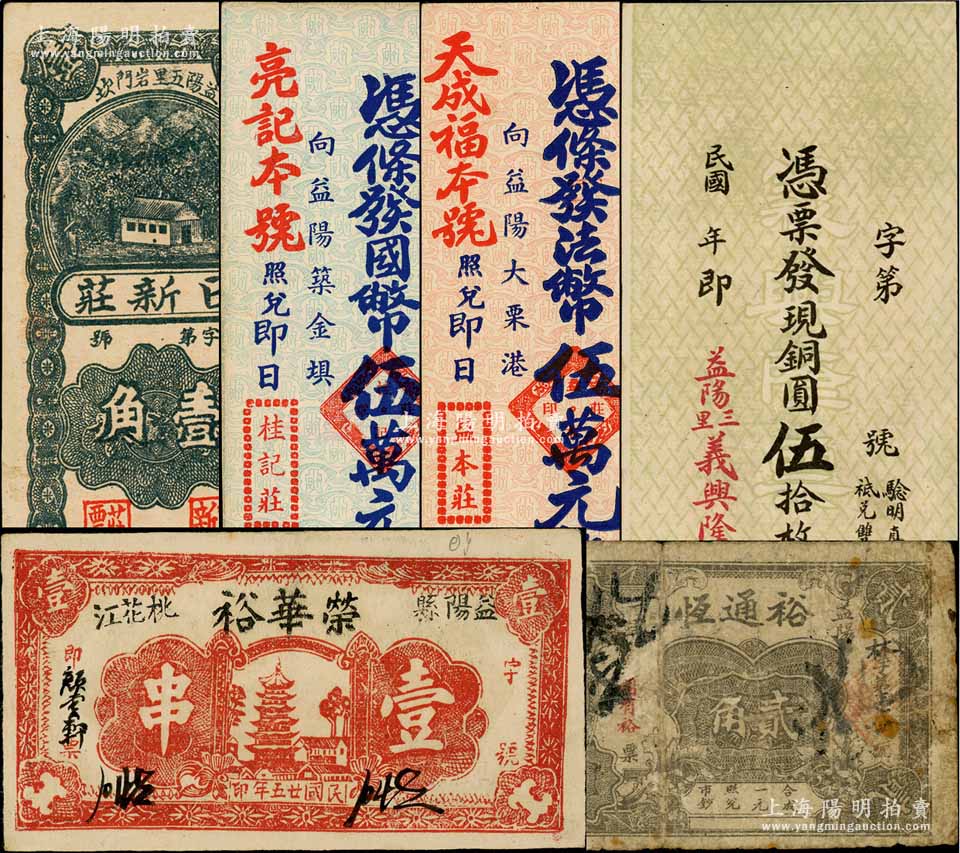 上海陽明拍賣
www.yangmingauction.com
益陽五里岩門坎
日新莊
字第 號
壹角
憑條發國幣伍萬元
向益陽築金垻
亮記本號照兌即日
桂記莊
憑條發法幣伍萬元
向益陽大栗港
天成福本號照兌即日
本莊
字第 號
驗明真
祗兌雙
憑票發現銅圓伍拾枚
民國 年 即
益陽三里義興隆
壹
壹
益陽縣
榮華裕
桃花江
字 號
壹串
即 票
民國廿五年印
裕通恆
貳角
票
合成一元
照兌市鈔
上海陽明拍賣
www.yangmingauction.com
上海陽明拍賣
www.yangmingauction.com